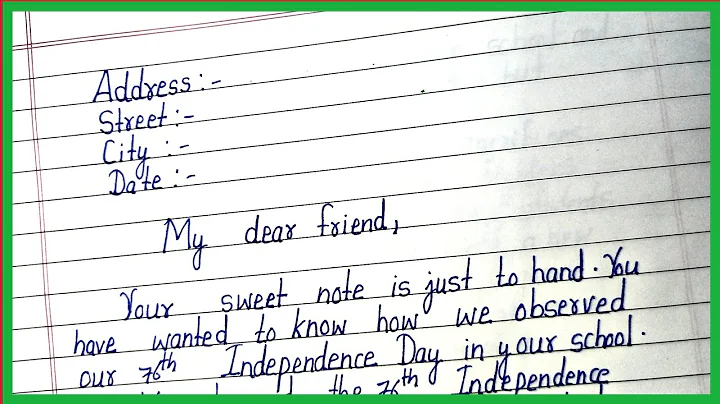 Address:-
Street:-
City :-
Date :-
My dear friend,
Your sweet note is just to hand. You
have wanted to know how we observed
our 76th Independence Day in your school.
the 76th Independence